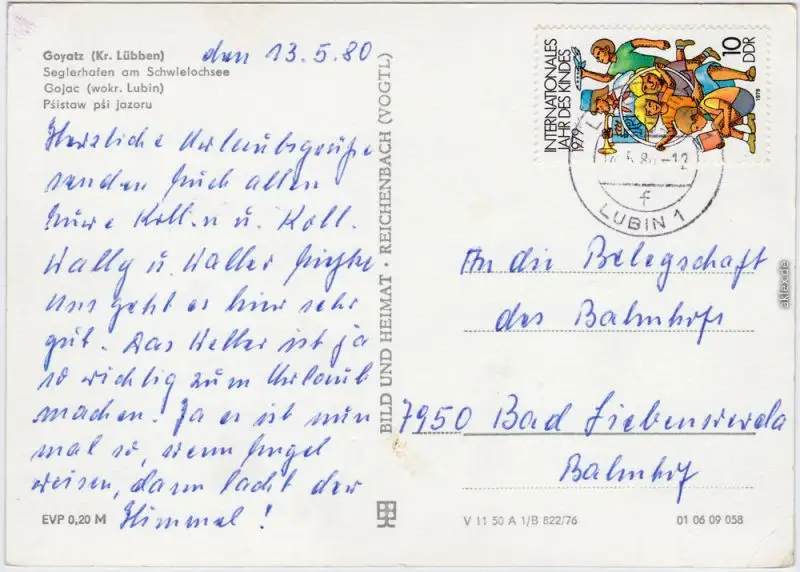 Goyatz (Kr. Lübben)
Seglerhafen am Schwielochsee
Gojac (wokr. Lubin)
Pśistaw pśi jazoru
den 13.5.80
Herzliche Urlaubsgrüße
senden Euch allen
Euwe Koll.n u. Koll.
Wally u. Walter
Uns geht es hier sehr
gut. Das Wetter ist ja
so richtig zum Urlaub
machen. Ja es ist nun
mal so, wenn Engel
reisen, dann lacht der
Himmel!
EVP 0,20 M
BILD UND HEIMAT · REICHENBACH (VOGTL)
INTERNATIONALES
JAHR DES KINDES
1979
10
DDR
1979
LUBIN 1
f
An die Belegschaft
des Bahnhofs
7950 Bad Liebenwerda
Bahnhof
V 11 50 A 1/B 822/76
01 06 09 058
akpool.de